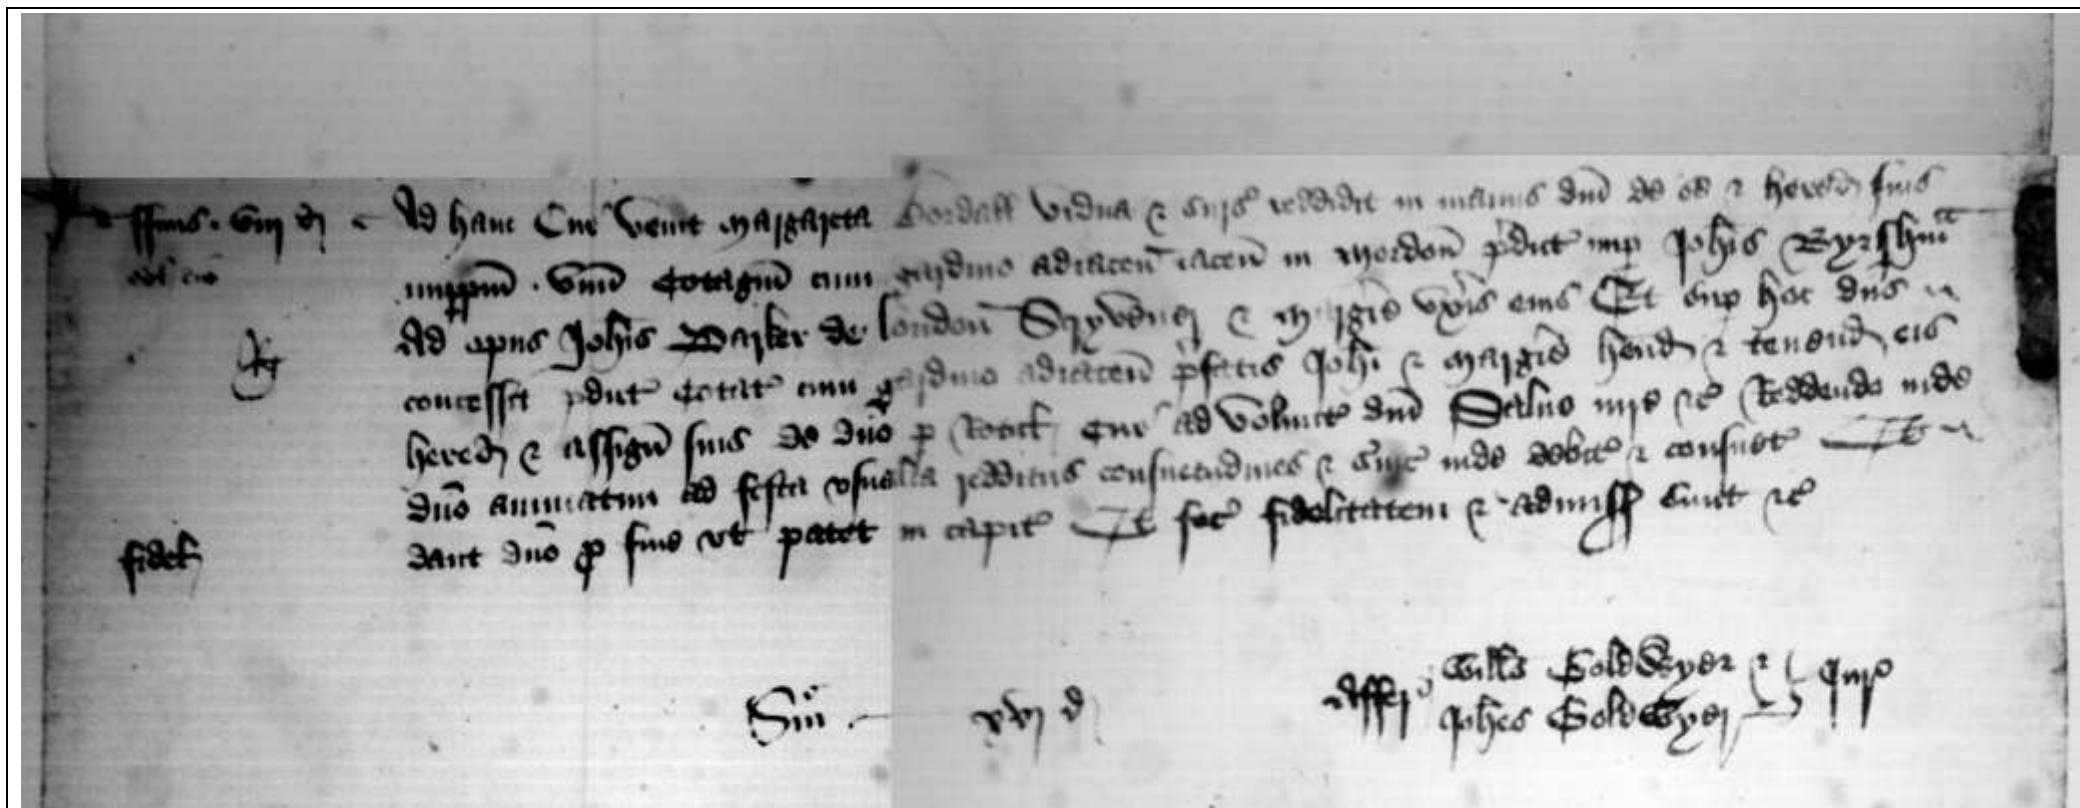 ffinis . viij d Ad hanc Cur venit Margareta vidua & surs reddidit in manus dni de se & hered suis
imppm . vnu Cotagiu cum gardino adiacen iacen in Mordon pdict nup Johis
Ad opus Johis Parker de london Scryven & Margie vxis eius Et sup hoc dns
concessit pdict Cotag cum gardino adiacen pfatis Johi & Margie hend & tenend eis
hered & assign suis de dno p Rotul Cur ad volunt dni Saluo iure &c Reddendo inde
dno annuatim ad festa vsualia redditus consuetudines & suic inde debit & consuet Et
fidel dant dno p fine vt patet in capit Et fec fidelitatem & admiss sunt &c
Sm xvj d Affer Wills Goldwyer &
Johes Goldwyer Jur